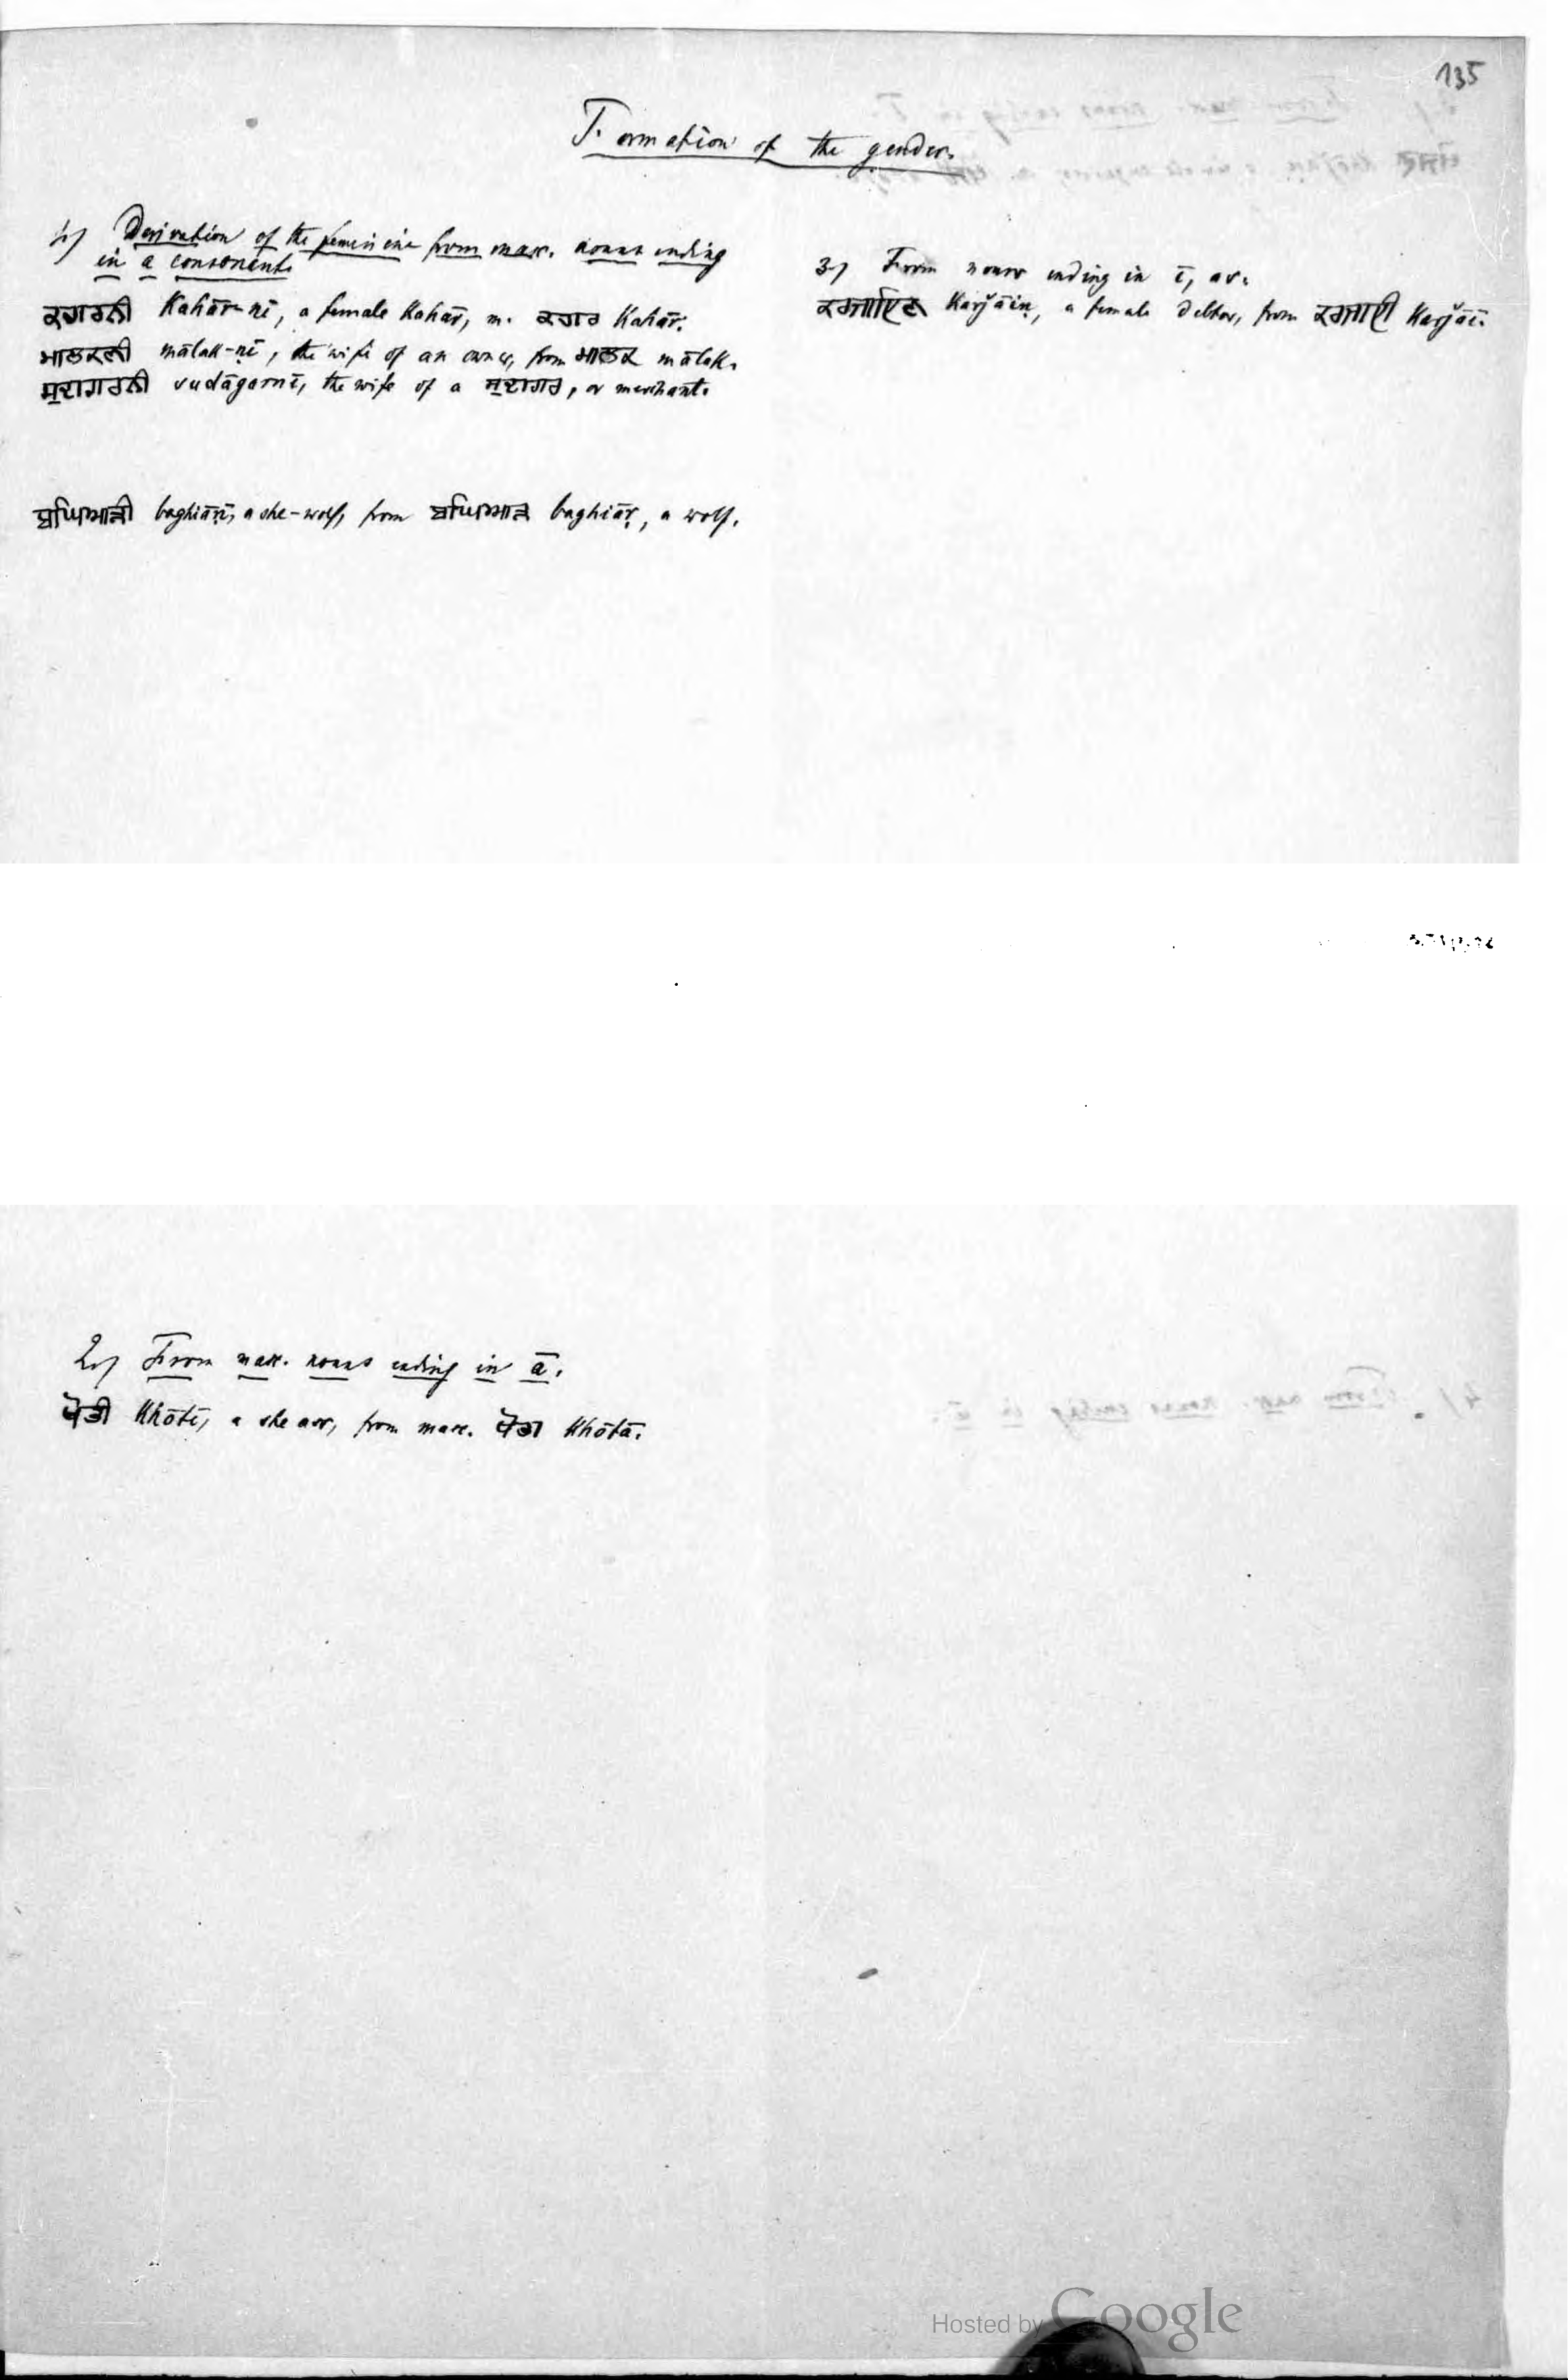 135
Formation of the gender.
1) Derivation of the feminine from masc. nouns ending
in a consonent.
ਕਹਾਰਨੀ Kahār-nī, a female Kahār, m. ਕਹਾਰ Kahār.
ਮਾਲਕਣੀ mālak-ṇī, the wife of an owner, from ਮਾਲਕ mālak.
ਸੁਦਾਗਰਨੀ sudāgarnī, the wife of a ਸੁਦਾਗਰ, or merchant.
ਬਘਿਆੜੀ baghiāṛī, a she-wolf, from ਬਘਿਆੜ baghiāṛ, a wolf.
3) From nouns ending in ī, as.
ਕਰਜਾਇਣ Karǰāiṇ, a female debtor, from ਕਰਜਾਈ Karǰāī.
2) From masc. nouns ending in ā.
ਖੋਤੀ Khōtī, a she ass, from masc. ਖੋਤਾ Khōtā.
Hosted by Google